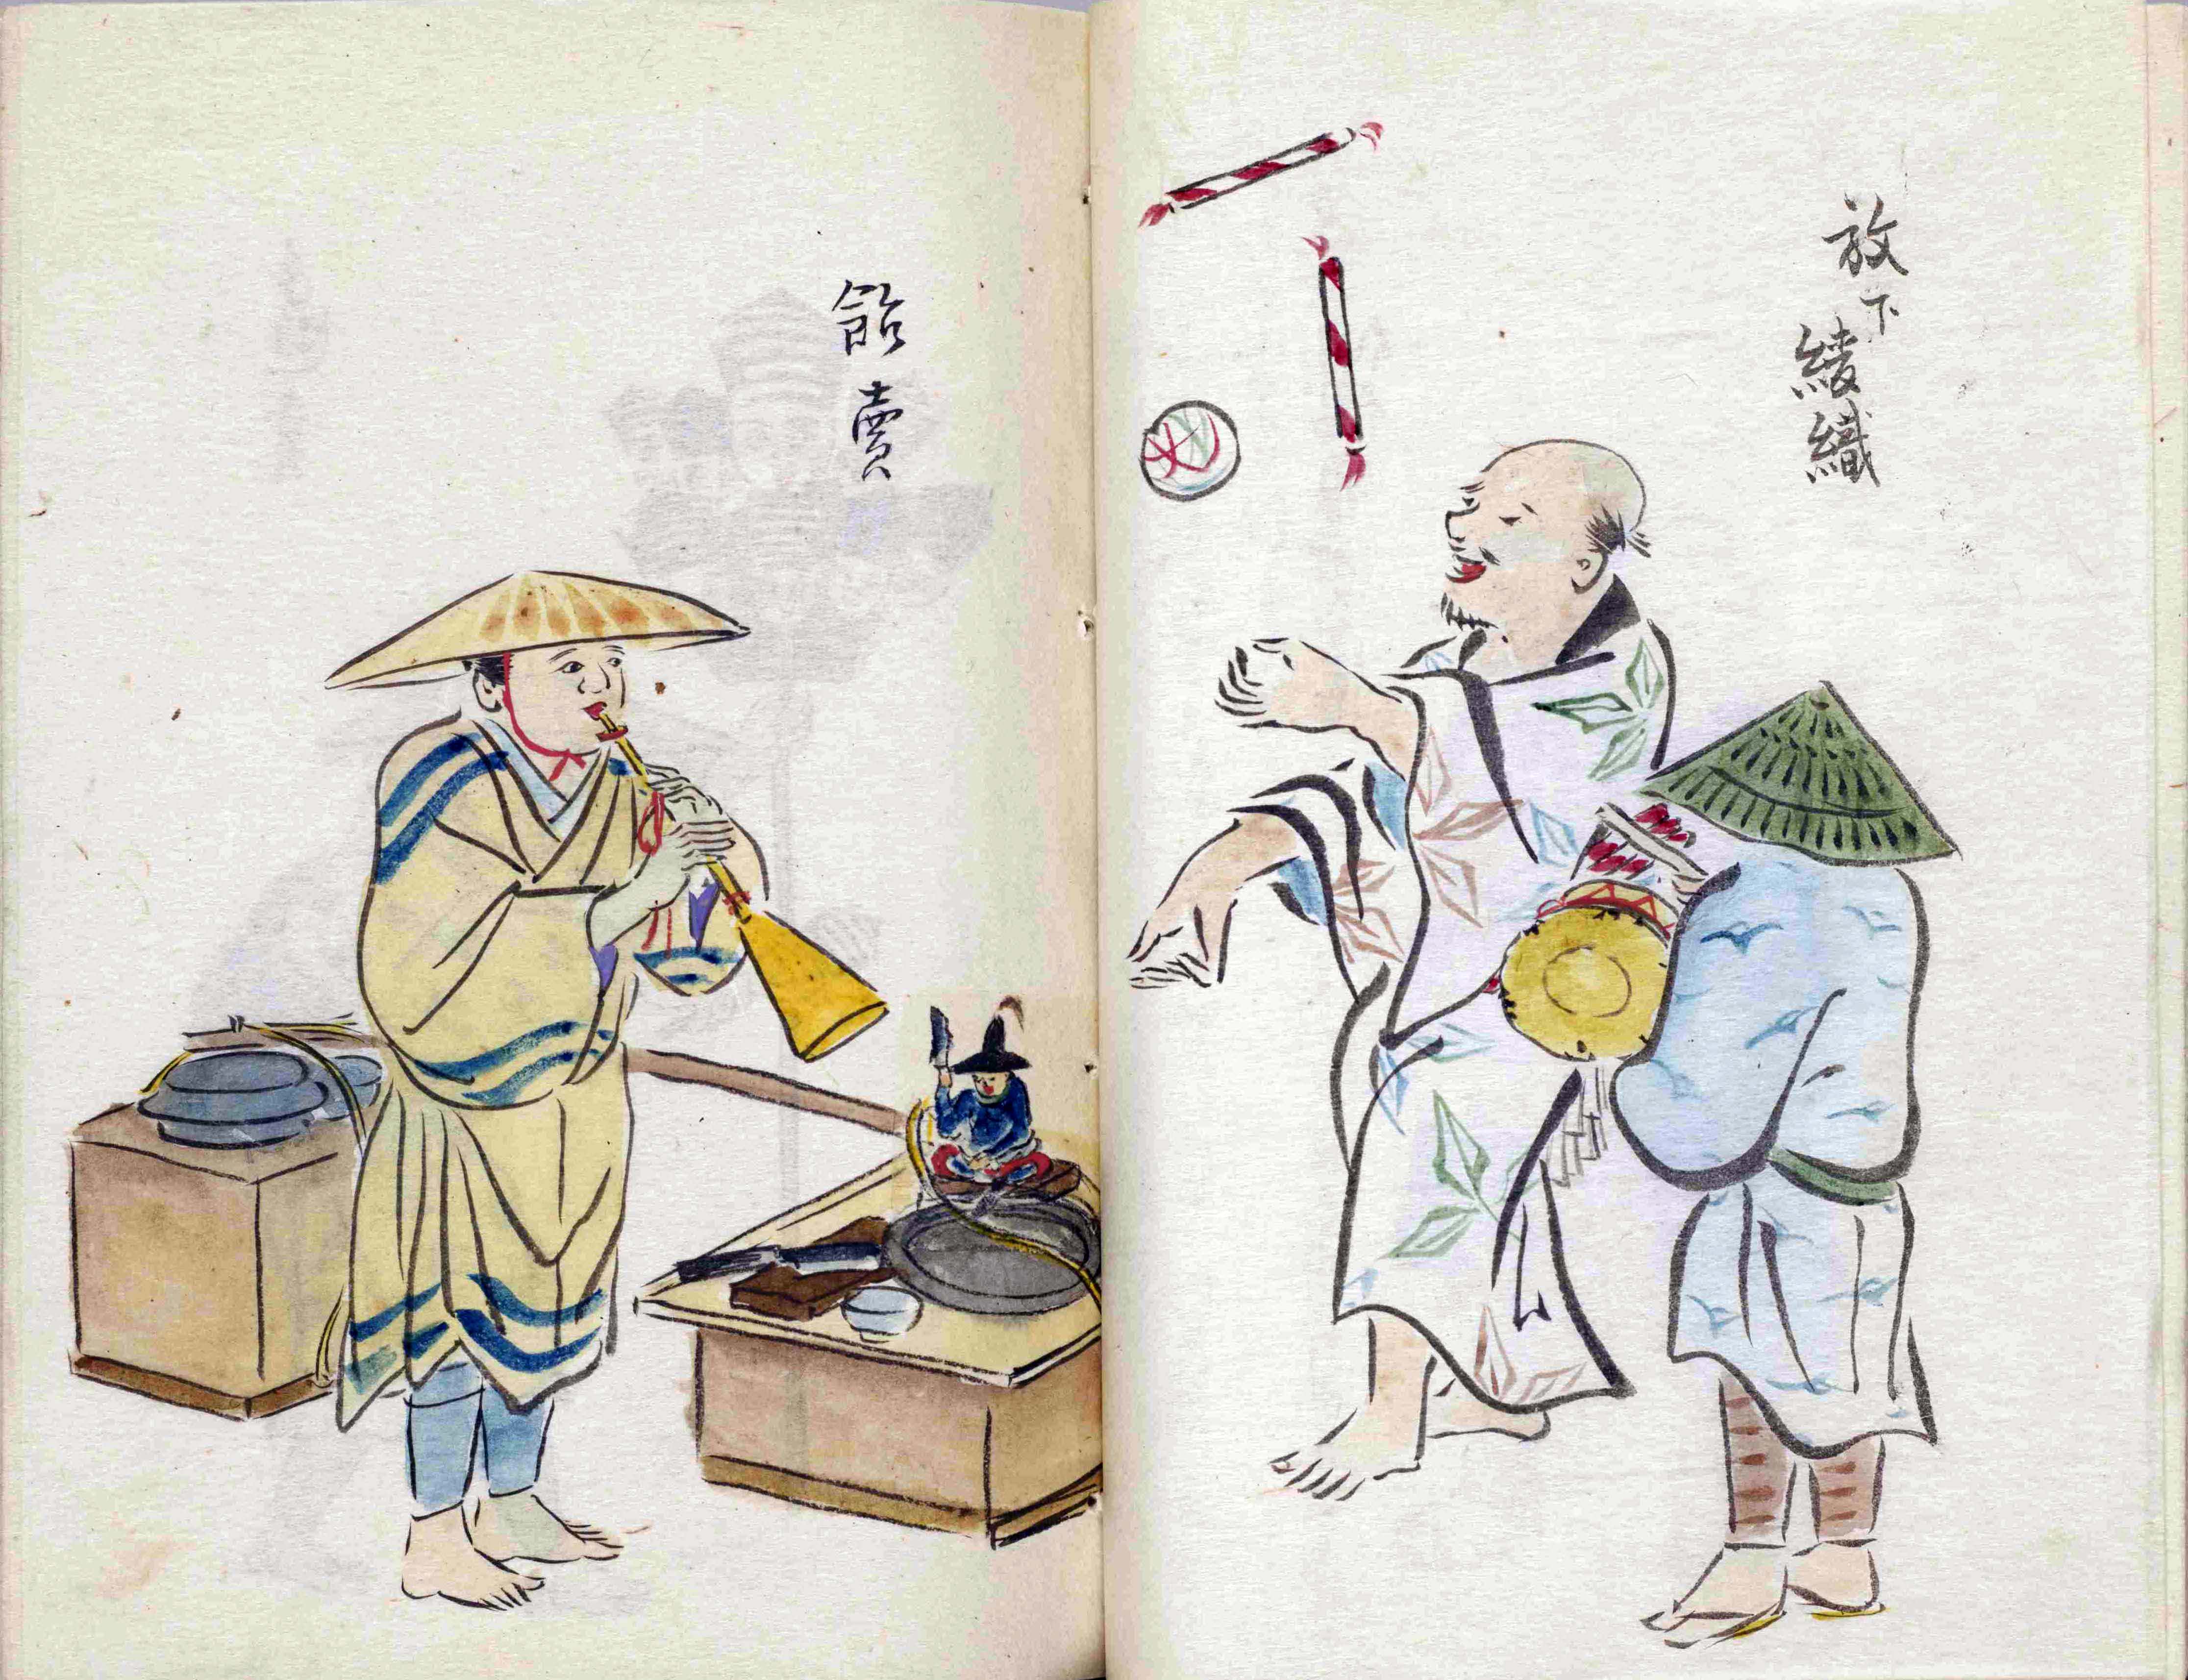 放下
綾織
飴賣